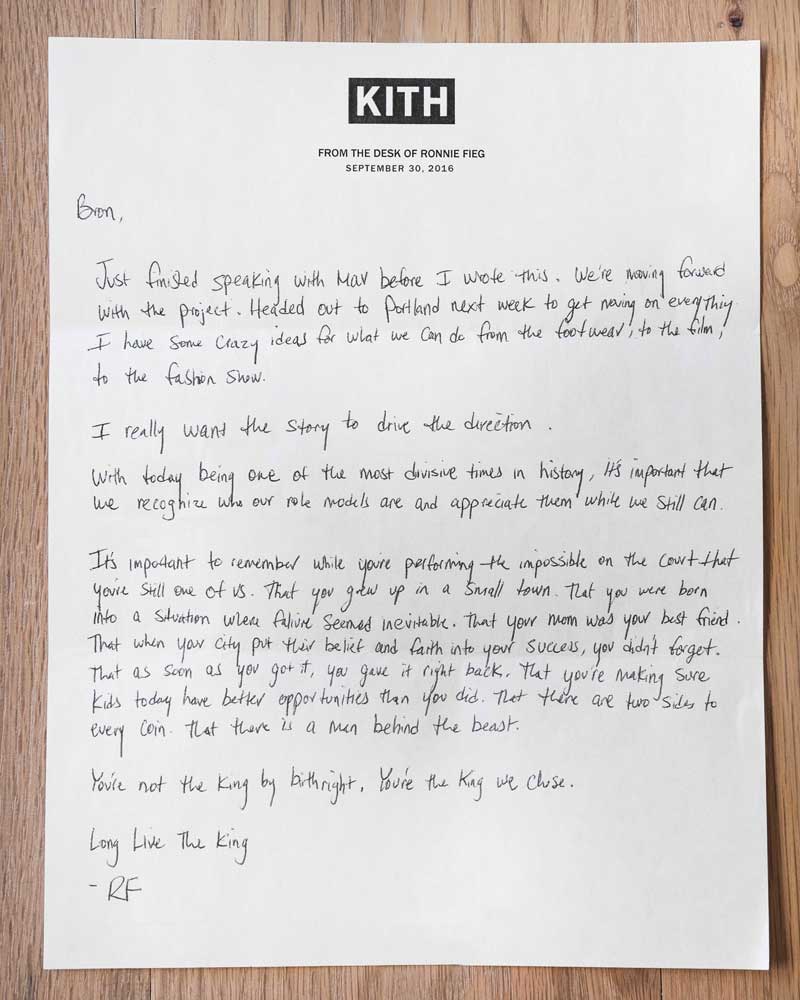 KITH
FROM THE DESK OF RONNIE FIEG
SEPTEMBER 30, 2016
Bron,
Just finished speaking with Mav before I wrote this. We're moving forward
with the project. Headed out to Portland next week to get moving on everything
I have some crazy ideas for what we can do from the footwear, to the film,
to the fashion show.
I really want the story to drive the direction.
With today being one of the most divisive times in history, it's important that
we recognize who our role models are and appreciate them while we still can.
It's important to remember while you're performing the impossible on the court that
you're still one of us. That you grew up in a small town. That you were born
into a situation where faliure seemed inevitable. That your mom was your best friend.
That when your city put their belief and faith into your success, you didn't forget.
That as soon as you got it, you gave it right back. That you're making sure
kids today have better opportunities than you did. That there are two sides to
every coin. That there is a man behind the beast.
You're not the king by birthright, You're the King we chose.
Long Live The King
- RF